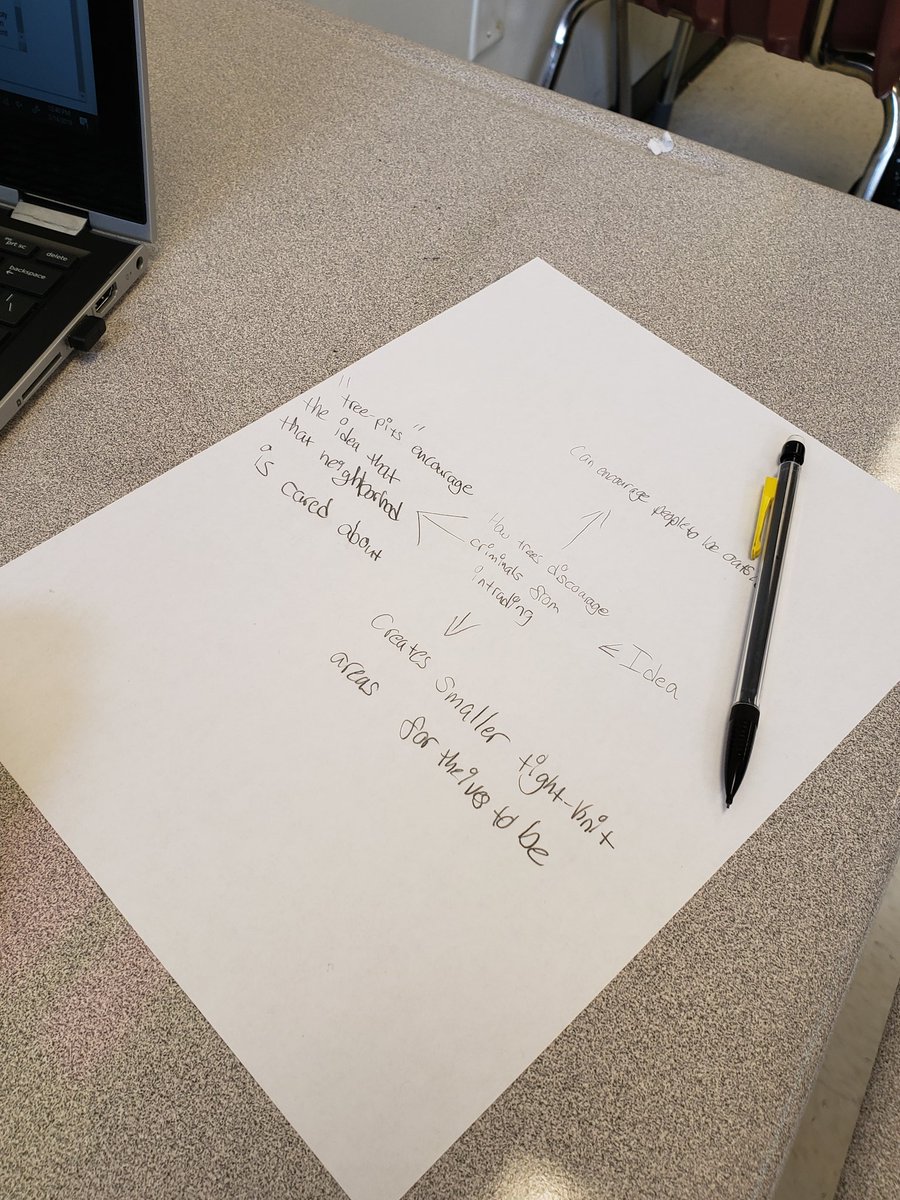 "tree-pits" encourage
the idea that
that neighborhod
is cared about
Can encourage people to be
How trees discourage
criminals from
intrading
< Idea
Creates smaller tight-knit
areas for theives to be
prt sc
delete
backspace